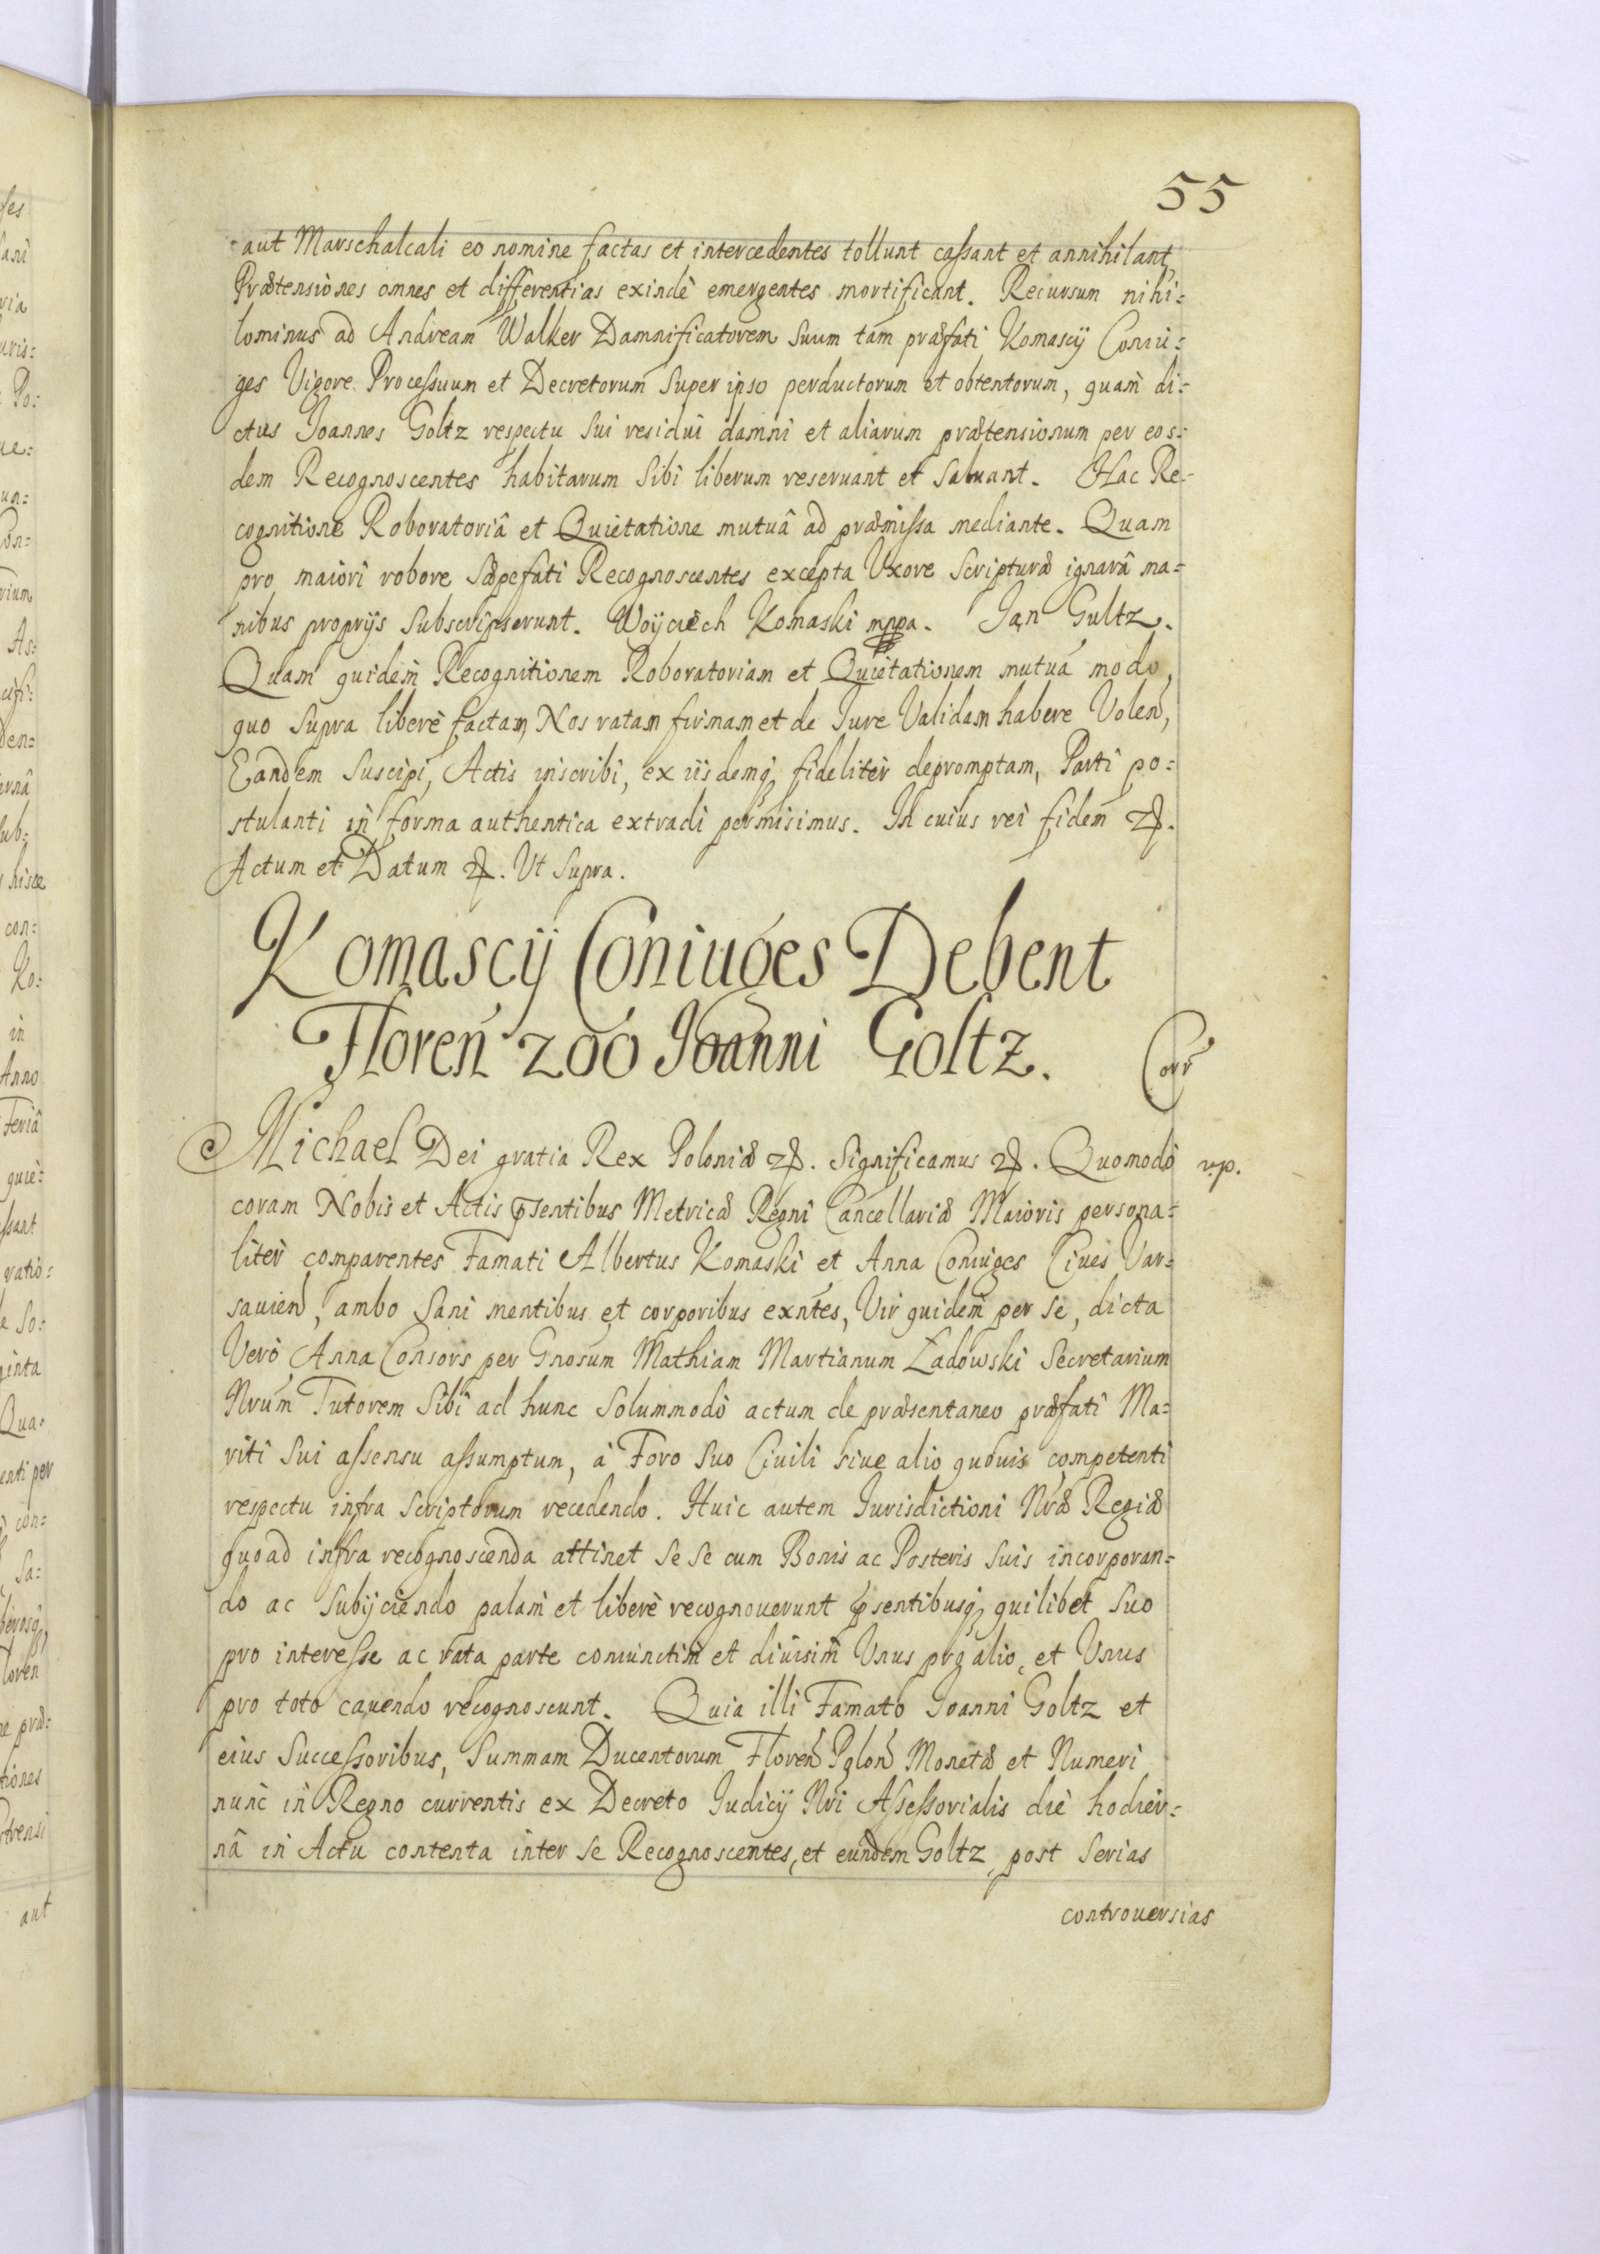 55
aut Marschalcali eo nomine factas et intercedentes tollunt cassant et annihilant,
Prætensiones omnes et differentias exindè emergentes mortificant. Recursum nihi=
lominus ad Andream Walker Damnificatorem suum tàm præfati Komascÿ Coniu=
ges Vigore Processuum et Decretorum super ipso perductorum et obtentorum, quàm di=
ctus Joannes Goltz respectu sui residui damni et aliarum prætensionum per eos=
dem Recognoscentes habitarum sibi liberum reseruant et saluant. Hac Re=
cognitione Roboratoriâ et Quietatione mutuâ ad præmissa mediante. Quam
pro maiori robore sæpefati Recognoscentes excepta Uxore scripturæ ignarâ ma=
nibus proprijs subscripserunt. Woÿciech Komaski mppa. Jan Gultz.
Quam quidem Recognitionem Roboratoriam et Quietationem mutuá modo,
quo supra liberè factam, Nos ratam firmam et de Jure Validam habere Volen,
Eandem suscipi, Actis inscribi, ex iisdemq fideliter depromptam, Parti po=
stulanti in forma authentica extradi permisimus. In cuius rei fidem &.
Actum et Datum &. Ut supra.
Komascÿ Coniuges Debent
Floren 200 Joanni Goltz.
Corr
Michael Dei gratia Rex Poloniæ &. Significamus &. Quomodo
r.p.
coram Nobis et Actis pñsentibus Metricæ Regni Cancellariæ Maioris persona=
liter comparentes Famati Albertus Komaski et Anna Coniuges Ciues Var=
sauien, ambo sani mentibus et corporibus exntes, Vir quidem per se, dicta
Verò Anna Consors per Gnosum Mathiam Martianum Ładowski Secretarium
Nrum Tutorem sibi ad hunc solummodò actum de præsentaneo præfati Ma=
riti sui assensu assumptum, à Foro suo Ciuili siue alio quouis competenti
respectu infra scriptorum recedendo. Huic autem Jurisdictioni Nræ Regiæ
quoad infra recognoscenda attinet se se cum Bonis ac Posteris suis incorporan=
do ac subÿciendo palàm et liberè recognouerunt pñsentibusq quilibet suo
pro interesse ac rata parte coniunctim et diuisim Unus pro alio, et Unus
pro toto cauendo recognoscunt. Quia illi Famato Joanni Goltz et
eius Successoribus, summam Ducentorum Floren Polon Monetæ et Numeri
nunc in Regno currentis ex Decreto Judicÿ Nri Assessorialis die hodier=
nâ in Actu contenta inter se Recognoscentes, et eundem Goltz, post serias
controuersias